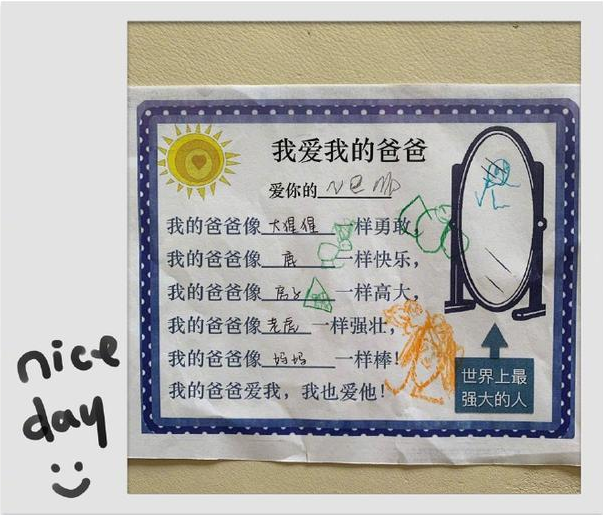 我爱我的爸爸
爱你的
我的爸爸像大猩猩一样勇敢,
我的爸爸像鹿一样快乐,
我的爸爸像房子一样高大,
我的爸爸像老虎一样强壮,
我的爸爸像妈妈一样棒!
我的爸爸爱我,我也爱他!
世界上最
强大的人
nice
day